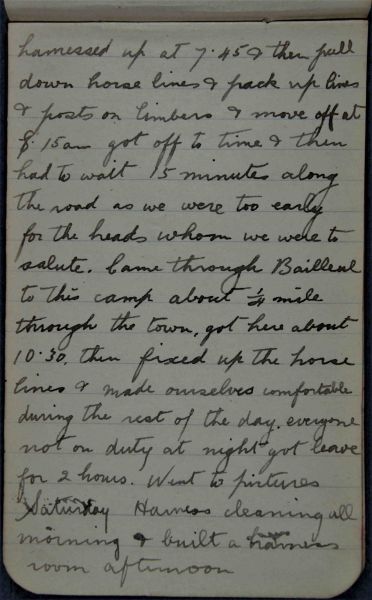 harnessed up at 7.45 & then pull
down horse lines & pack up lines
& posts on limbers & move off at
8.15am got off to time & then
had to wait 15 minutes along
the road as we were too early
for the heads whom we were to
salute. Came through Bailleul
to this camp about ¼ mile
through the town, got here about
10.30, then fixed up the horse
lines & made ourselves comfortable
during the rest of the day, everyone
not on duty at night got leave
for 2 hours. Went to pictures
Saturday Harness cleaning all
morning & built a harness
room afternoon